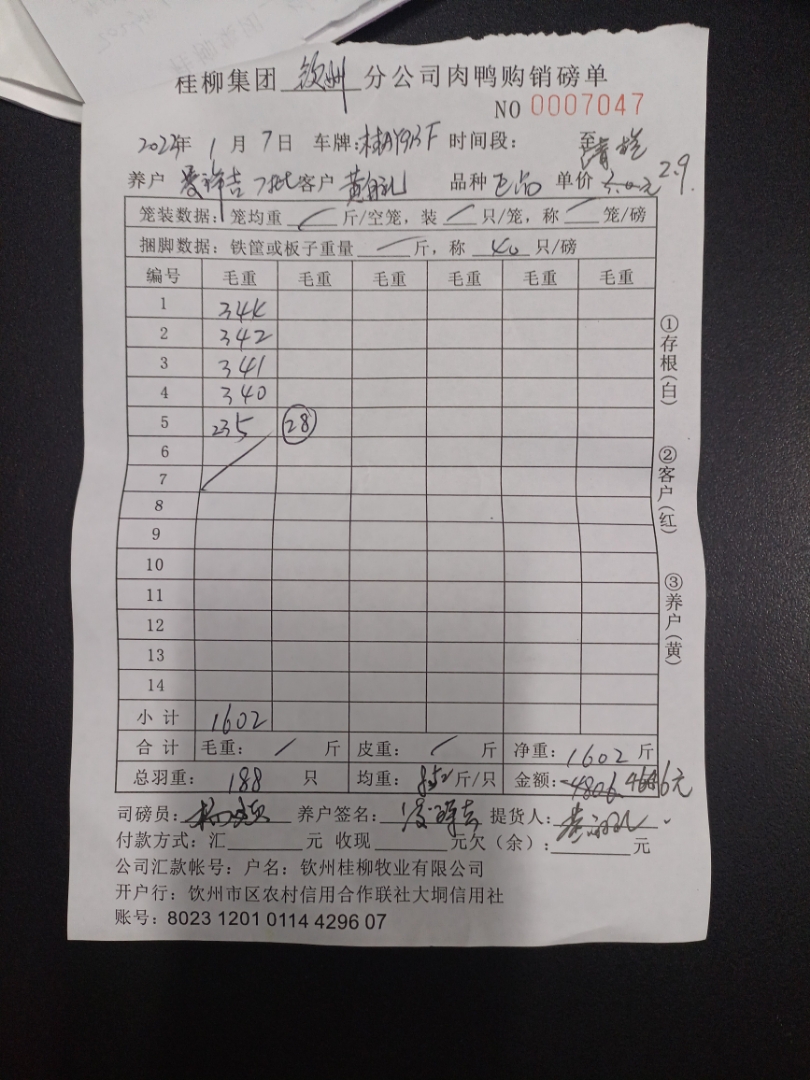 桂柳集团 钦州 分公司肉鸭购销磅单
NO 0007047
年 1 月 7 日 车牌: 时间段:
养户 客户 品种 正品 单价 2.9
笼装数据: 笼均重 斤/空笼, 装 只/笼, 称 笼/磅
捆脚数据: 铁筐或板子重量 斤, 称 40 只/磅
编号 毛重 毛重 毛重 毛重 毛重 毛重
1 344
2 342
3 341
4 340
5 235 28
6
7
8
9
10
11
12
13
14
小计 1602
合计 毛重: 斤 皮重: 斤 净重: 1602 斤
总羽重: 188 只 均重: 8.52 斤/只 金额: 4806 4646元
司磅员: 养户签名: 提货人:
付款方式: 汇 元 收现 元欠(余): 元
公司汇款帐号: 户名: 钦州桂柳牧业有限公司
开户行: 钦州市区农村信用合作联社大垌信用社
账号: 8023 1201 0114 4296 07
①存根(白)
②客户(红)
③养户(黄)